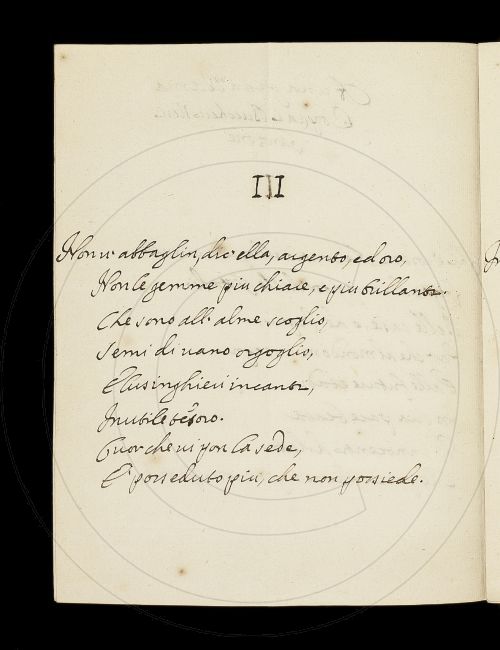 III
Non u' abbaglin, dic' ella, argento, ed oro,
Non le gemme più chiare, e più brillanti.
Che sono all' alme scoglio,
Semi di uano orgoglio,
E lusinghieri incanti,
Inutile tesoro.
Cuor che ui pon la sede,
E' posseduto più, che non possiede.